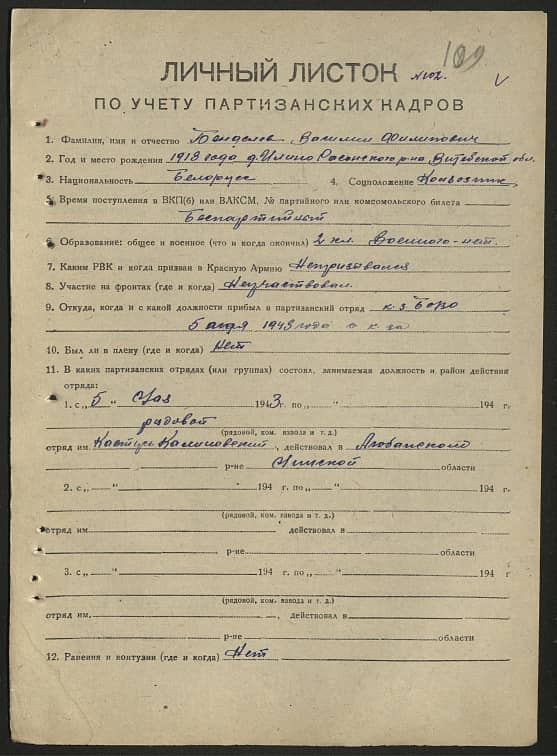 109
ЛИЧНЫЙ ЛИСТОК №102. V
ПО УЧЕТУ ПАРТИЗАНСКИХ КАДРОВ
1. Фамилия, имя и отчество Василий Филипович
2. Год и место рождения 1918 года д. Юлино Расонского р-на Витебской обл.
3. Национальность Белорусс 4. Соцположение
5. Время поступления в ВКП(б) или ВЛКСМ, № партийного или комсомольского билета
Беспартийный
6. Образование: общее и военное (что и когда окончил) 2 кл. Военного-нет.
7. Каким РВК и когда призван в Красную Армию Непризывался
8. Участие на фронтах (где и когда) Неучаствовал.
9. Откуда, когда и с какой должности прибыл в партизанский отряд
5 1943 года
10. Был ли в плену (где и когда) Нет
11. В каких партизанских отрядах (или группах) состоял, занимаемая должность и район действия
отряда:
1. с „ 5 “ 1943 г. по „ “ 194 г.
рядовой
(рядовой, ком. взвода и т. д.)
отряд им. Кастусь Калиновский, действовал в Любанском
р-не Минской области
2. с „ “ 194 г. по „ “ 194 г.
(рядовой, ком. взвода и т. д.)
отряд им. действовал в
р-не области
3. с „ “ 194 г. по „ “ 194 г
(рядовой, ком. взвода и т. д.)
отряд им. , действовал в
р-не области
12. Ранения и контузии (где и когда) Нет